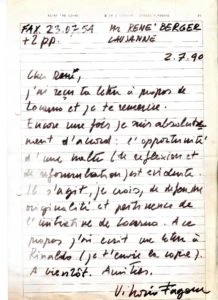 FAX. 23.07.54 Mr RENÉ BERGER
+2 pp. LAUSANNE
2.7.90
Cher René,
j'ai reçu ta lettre à propos de
Locarno et je te remercie.
Encore une fois je suis absolute
ment d'accord: l'opportunité
d'une halte de réflexion et
de reformulation est évidente.
Il s'agit, je crois, de défendre
originalité et pertinence de
l'initiative de Locarno. A ce
propos j'ai écrit une lettre à
Rinaldo (je t'envoie la copie).
A bientôt. Amitiés.
Vittorio Fagone